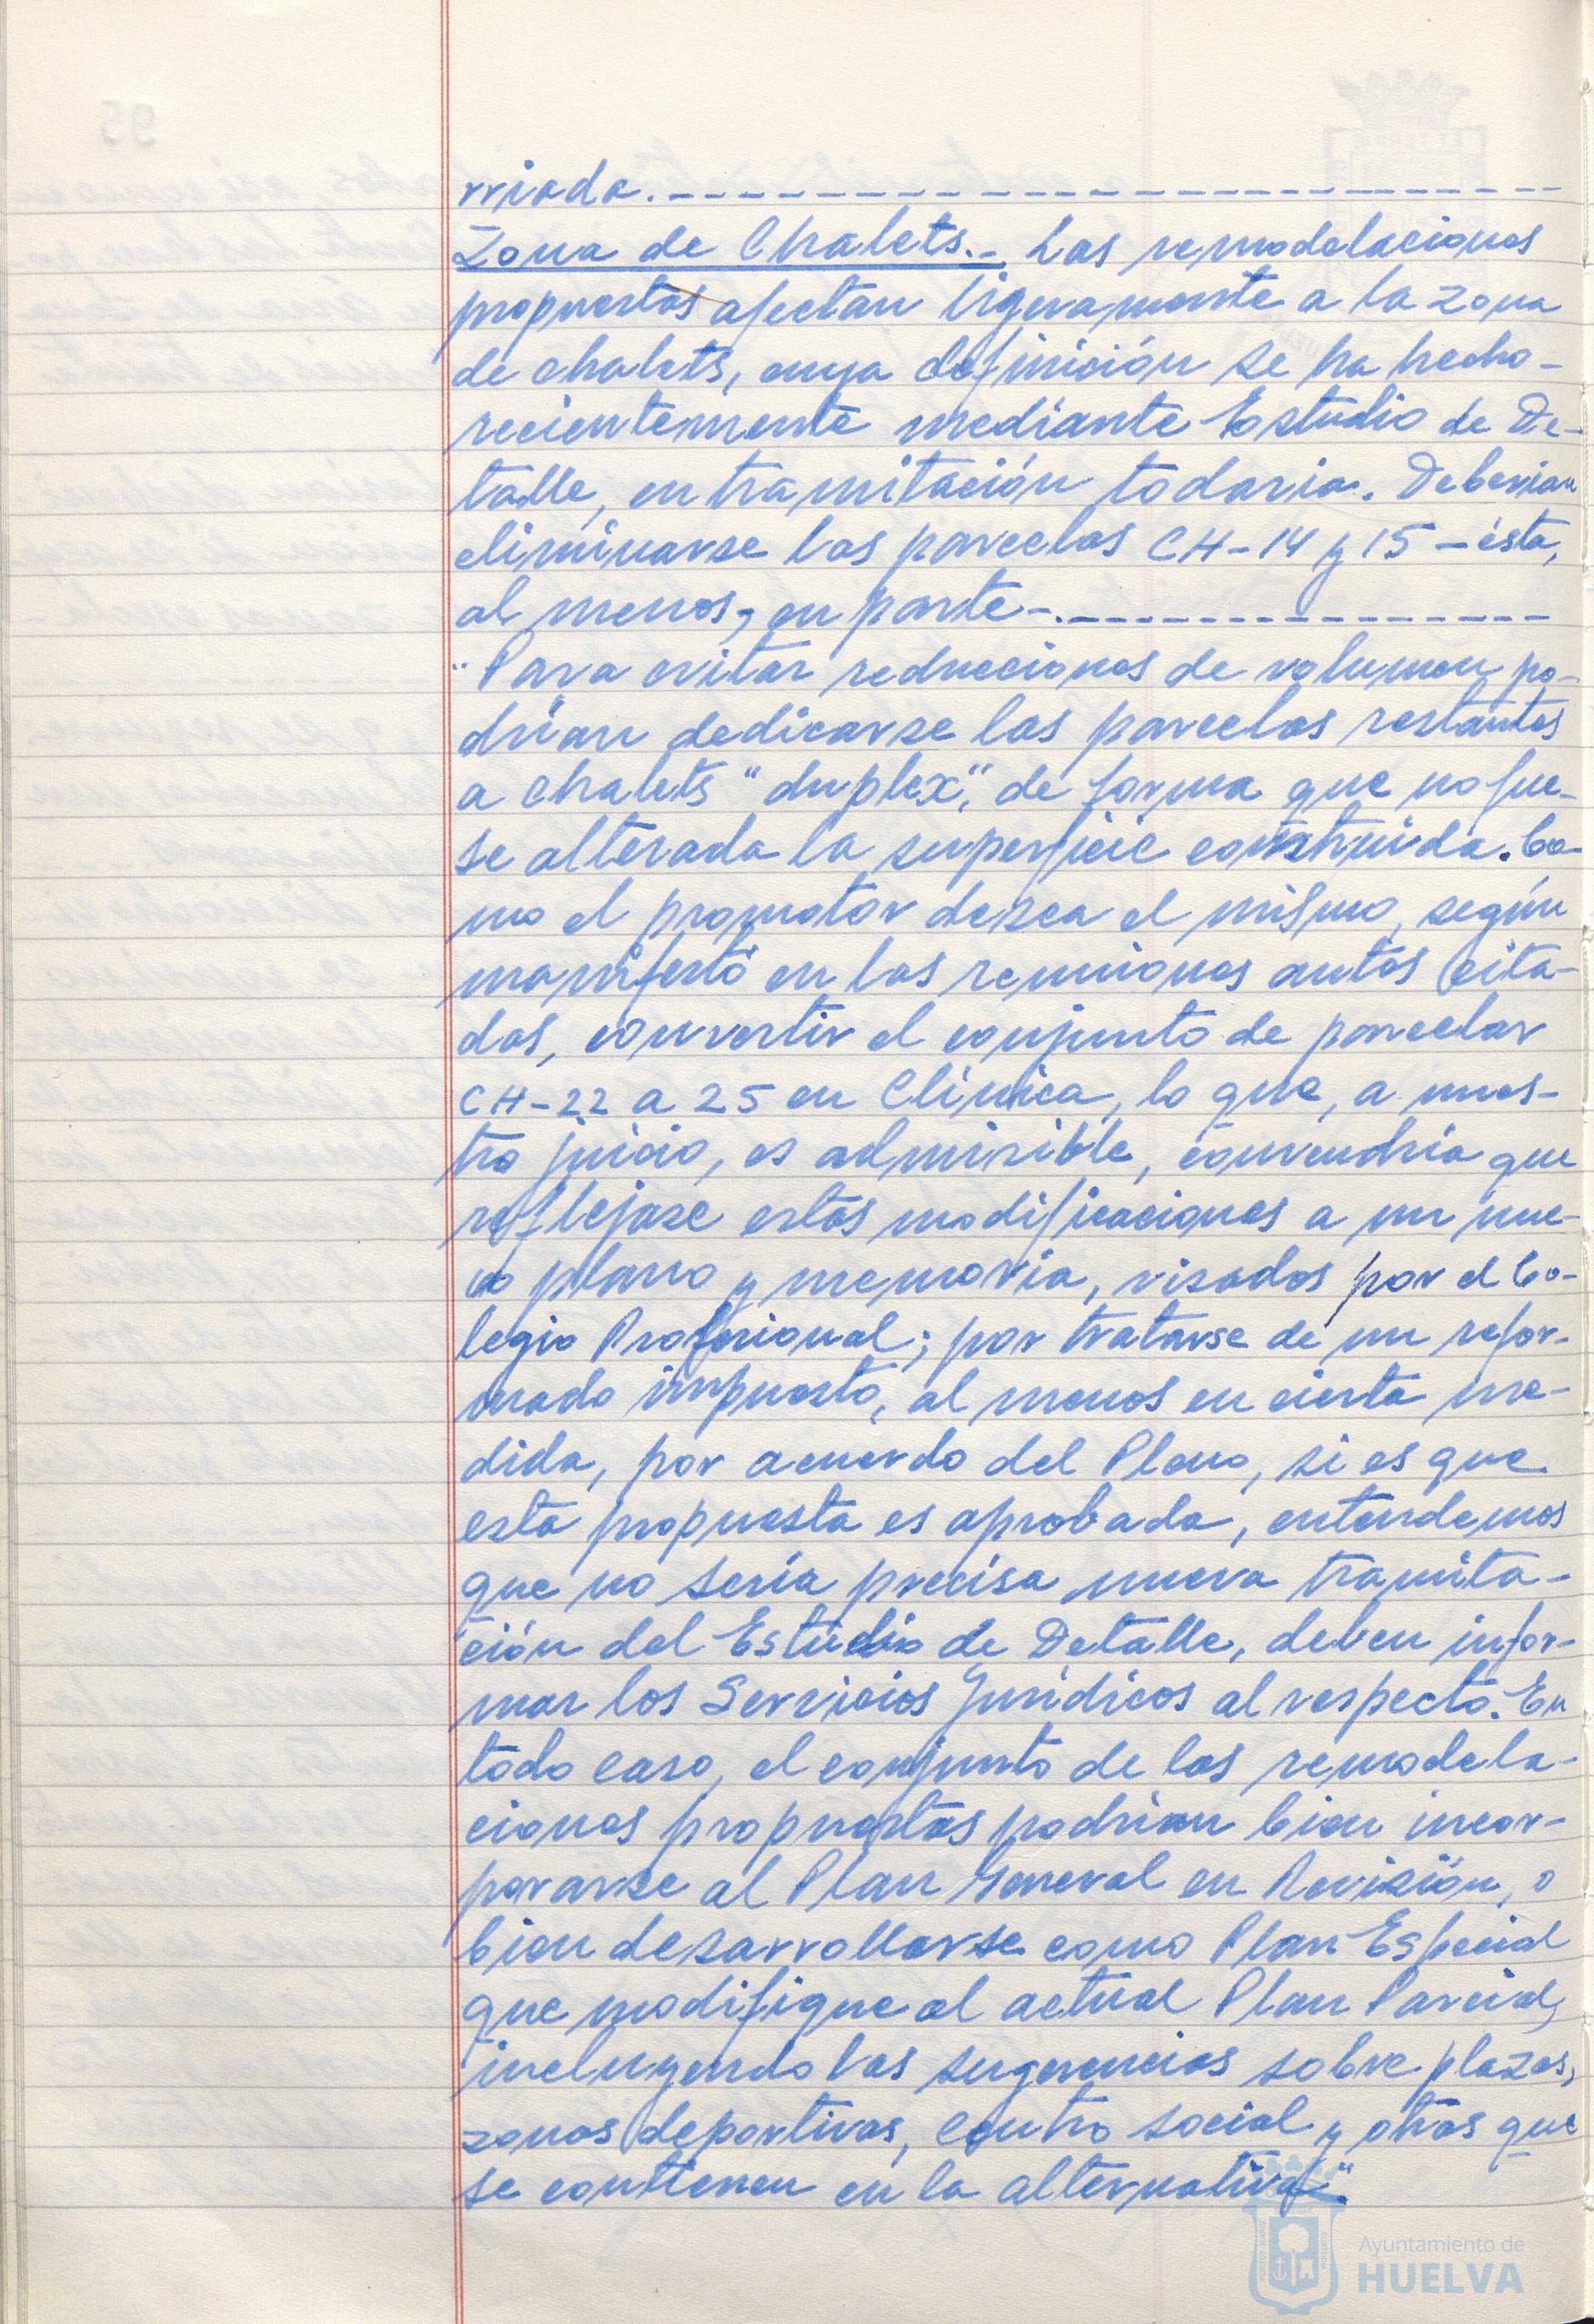 rriada.-------------------------
Zona de Chalets.- Las remodelaciones
propuestas afectan ligeramente a la zona
de chalets, cuya definición se ha hecho-
recientemente mediante Estudio de De-
talle, en tramitación todavia. Deberian
eliminarse las parcelas CH-14 y 15 - ésta,
al menos, en parte-.----------------
"Para evitar reducciones de volumen po-
drian dedicarse las parcelas restantes
a chalets "duplex", de forma que no fue-
se alterada la superficie construida. Co-
mo el promotor desea el mismo, según
manifestó en las reuniones antes cita-
das, convertir el conjunto de parcelas
CH-22 a 25 en Clinica, lo que, a nues-
tro juicio, es admisible, convendria que
reflejase estas modificaciones a un nue-
vo plano y memoria, visados por el Co-
legio Profesional; por tratarse de un refor-
mado impuesto, al menos en cierta me-
dida, por acuerdo del Pleno, si es que
esta propuesta es aprobada, entendemos
que no seria precisa nueva tramita-
ción del Estudio de Detalle, deben infor-
mar los Servicios Juridicos al respecto. En
todo caso, el conjunto de las remodela-
ciones propuestas podrian bien incor-
porarse al Plan General en Revisión, o
bien desarrollarse como Plan Especial
que modifique al actual Plan Parcial,
incluyendo las sugerencias sobre plazas,
zonas deportivas, Centro social y otras que
se contienen en la alternativa".
Ayuntamiento de
HUELVA